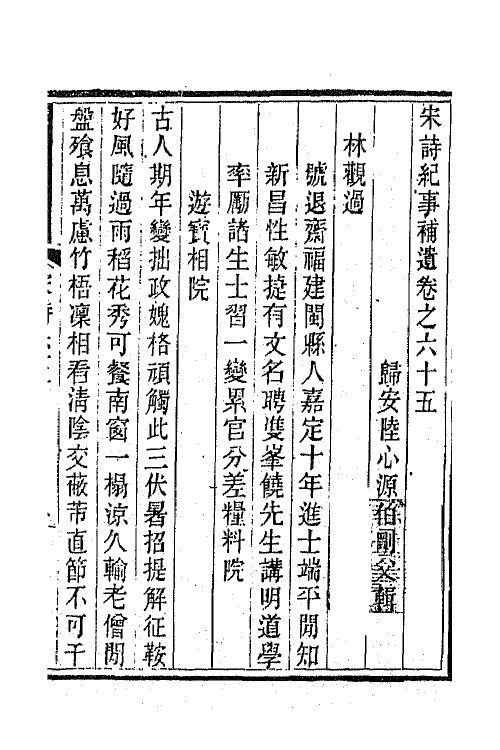 宋詩紀事補遺卷之六十五
歸安陸心源伯剛父輯
林觀過
號退齋福建閩縣人嘉定十年進士端平閒知
新昌性敏捷有文名聘雙峯饒先生講明道學
率勵諸生士習一變累官分差糧料院
遊寶相院
古人期年變拙政媿格頑觸此三伏暑招提解征鞍
好風隨過雨稻花秀可餐南窗一榻涼久輸老僧閒
盤飱息萬慮竹梧凜相看淸陰交蔽芾直節不可干